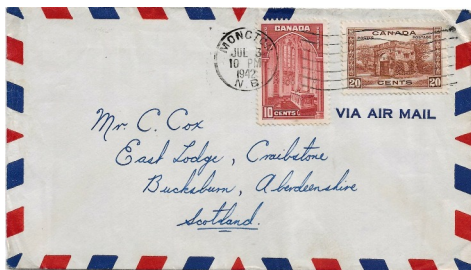 MONCTON
JUL 3
10 PM
1942
N B
CANADA
10 CENTS
CANADA
POSTES POSTAGE
20 CENTS 20
VIA AIR MAIL
Mr C. Cox
East Lodge, Craibstone
Bucksburn, Aberdeenshire
Scotland.